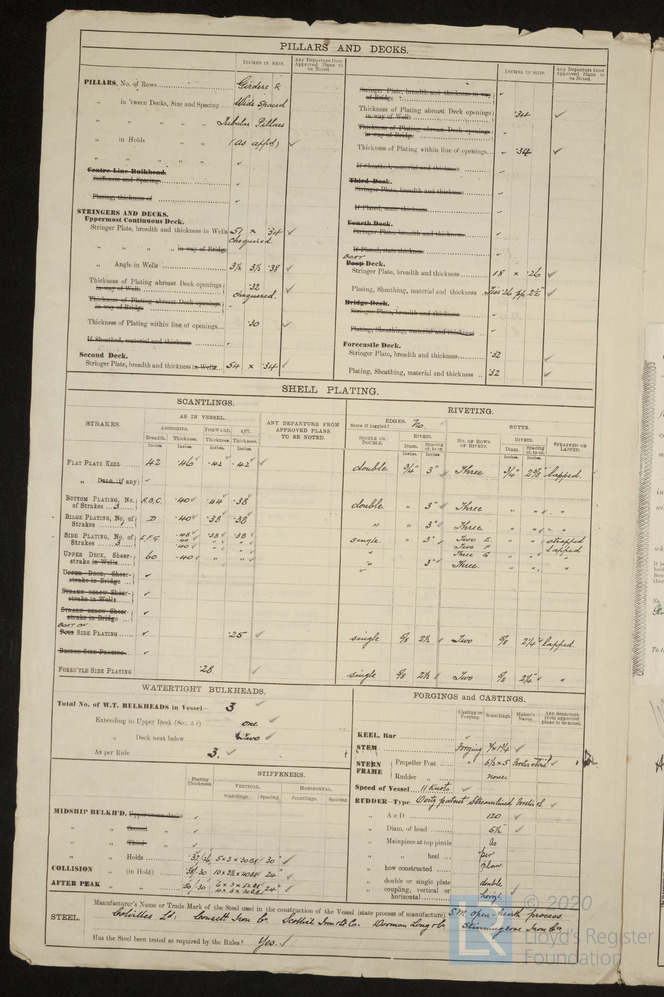 PILLARS AND DECKS.
INCHES IN SHIP.
Any Departure from Approved Plans to be Noted.
PILLARS, No. of Rows Girders &
„ in 'tween Decks, Size and Spacing Wide Spaced
„ „ „ „ Tubular Pillars
„ in Holds (as appd) ✓
„ „ „ „
Centre Line Bulkhead.
Stiffeners and Spacing
Plating, thickness of
STRINGERS AND DECKS.
Uppermost Continuous Deck.
Stringer Plate, breadth and thickness in Wells × .34 ✓
chequered.
„ „ „ „ in way of Bridge
„ Angle in Wells 3½ 3½ .38 ✓
Thickness of Plating abreast Deck openings in way of Wells .32 chequered.
Thickness of Plating abreast Deck openings in way of Bridge
Thickness of Plating within line of openings .30
If Sheathed, material and thickness
Second Deck.
Stringer Plate, breadth and thickness in Wells 54 × .34 ✓
INCHES IN SHIP.
Any Departure from Approved Plans to be Noted.
Stringer Plate, breadth and thickness in way of Bridge
Thickness of Plating abreast Deck openings in way of Wells .34 ✓
Thickness of Plating abreast Deck openings in way of Bridge
Thickness of Plating within line of openings .34 ✓
If Sheathed, material and thickness
Third Deck.
Stringer Plate, breadth and thickness
If Plated, state thickness
Fourth Deck.
Stringer Plate, breadth and thickness
If Plated, state thickness
BOAT
Poop Deck.
Stringer Plate, breadth and thickness 18 × .26 ✓
Plating, Sheathing, material and thickness .26 2½ ✓
Bridge Deck.
Stringer Plate, breadth and thickness
Plating, Sheathing, material and thickness
Forecastle Deck.
Stringer Plate, breadth and thickness .32
Plating, Sheathing, material and thickness .32 ✓
SHELL PLATING.
SCANTLINGS.
STRAKES.
AS IN VESSEL.
AMIDSHIPS. FORWARD. AFT.
Breadth. Thickness. Thickness. Thickness.
Inches. Inches. Inches. Inches.
ANY DEPARTURE FROM APPROVED PLANS TO BE NOTED.
RIVETING.
EDGES. No.
State if joggled?
SINGLE OR DOUBLE.
RIVETS.
Diam. Spacing cr. to cr.
BUTTS.
NO. OF ROWS OF RIVETS.
RIVETS.
Diam. Spacing cr. to cr.
STRAPPED OR LAPPED.
FLAT PLATE KEEL 42 .46 .42 .42 ✓ double ¾" 3" Three ¾" 2⅝" lapped.
„ Dbg. (if any)
BOTTOM PLATING, No. of Strakes 3 A.B.C. .40 .44 .38 double „ 3" Three „ „ „
BILGE PLATING, No. of Strakes D .40 .38 .38 „ „ 3" Three „ „ „
SIDE PLATING, No. of Strakes 3 E.F.G. .38 .38 single „ 3" Two E. strapped
Two F lapped
Three G „
UPPER DECK, Sheerstrake in Wells 60 .40 „ 3" Three „
UPPER DECK, Sheerstrake in Bridge
STRAKE BELOW Sheerstrake in Wells
STRAKE BELOW Sheerstrake in Bridge
BOAT DK
POOP SIDE PLATING .25 ✓ single ⅝ 2½ Two ⅝ 2¼" lapped.
BRIDGE SIDE PLATING
FOREC'TLE SIDE PLATING .28 ✓ single ⅝ 2½ Two ⅝ 2¼" „
WATERTIGHT BULKHEADS.
Total No. of W.T. BULKHEADS in Vessel 3
Extending to Upper Deck one
„ Deck next below Two
As per Rule 3. ✓
Plating Thickness.
STIFFENERS.
VERTICAL. HORIZONTAL.
Scantlings. Spacing. Scantlings. Spacing.
MIDSHIP BULKH'D, Upper tween decks
„ „ Second „
„ „ Third „
„ „ Holds 30" ✓
COLLISION „ (in Hold) 24" ✓
AFTER PEAK „ „ 24" ✓
FORGINGS and CASTINGS.
Casting or Forging. Scantlings. Maker's Name. Any departure from approved plans to be noted.
KEEL, Bar
STEM Forging 7 × 1¾
STERN FRAME
Propeller Post „ 6½ × 5
Rudder „ none
Speed of Vessel 11 Knots
RUDDER—Type Oertz patent Streamlined
„ A × D 120 ✓
„ Diam. of head 5½" ✓
„ Mainpiece at top pintle As
„ „ heel per
„ how constructed plan
„ double or single plate double
„ coupling, vertical or horizontal horizl ✓
STEEL.
Manufacturer's Name or Trade Mark of the Steel used in the construction of the Vessel (state process of manufacture) S.M. open hearth process.
Colvilles Ld. Consett Iron Co. Scottish Iron & Co. Dorman Long & Co. Skinningrove Iron Co.
Has the Steel been tested as required by the Rules? Yes. ✓
© 2020
Lloyd's Register
Foundation